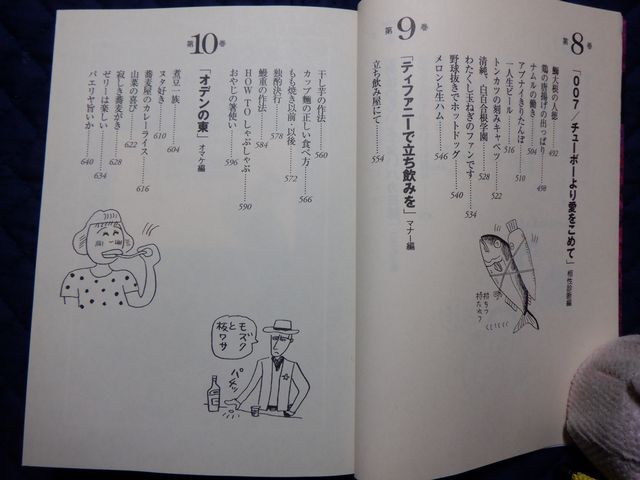 第8巻
「007／チューボーより愛をこめて」相性診断編
鰤大根の人徳……492
鶏の唐揚げの出っぱり……498
ナムルの働き……504
アブナイきりたんぽ……510
一人生ビール……516
トンカツの刻みキャベツ……522
清純、白百合根学園……528
わたくし玉ねぎのファンです……534
野球抜きでホットドッグ……540
メロンと生ハム……546
持ちつ
持たれつ
第9巻
「ティファニーで立ち飲みを」マナー編
立ち飲み屋にて……554
干し芋の作法……560
カップ麺の正しい食べ方……566
もも焼き以前・以後……572
独酌決行……578
鰻重の作法……584
HOW TO しゃぶしゃぶ……590
おやじの箸使い……596
第10巻
「オデンの東」オマケ編
煮豆一族……604
ヌタ好き……610
蕎麦屋のカレーライス……616
山菜の喜び……622
寂しき蕎麦がき……628
ゼリーは楽しい……634
パエリヤ旨いか……640
モズク
と
板ワサ
パチッ